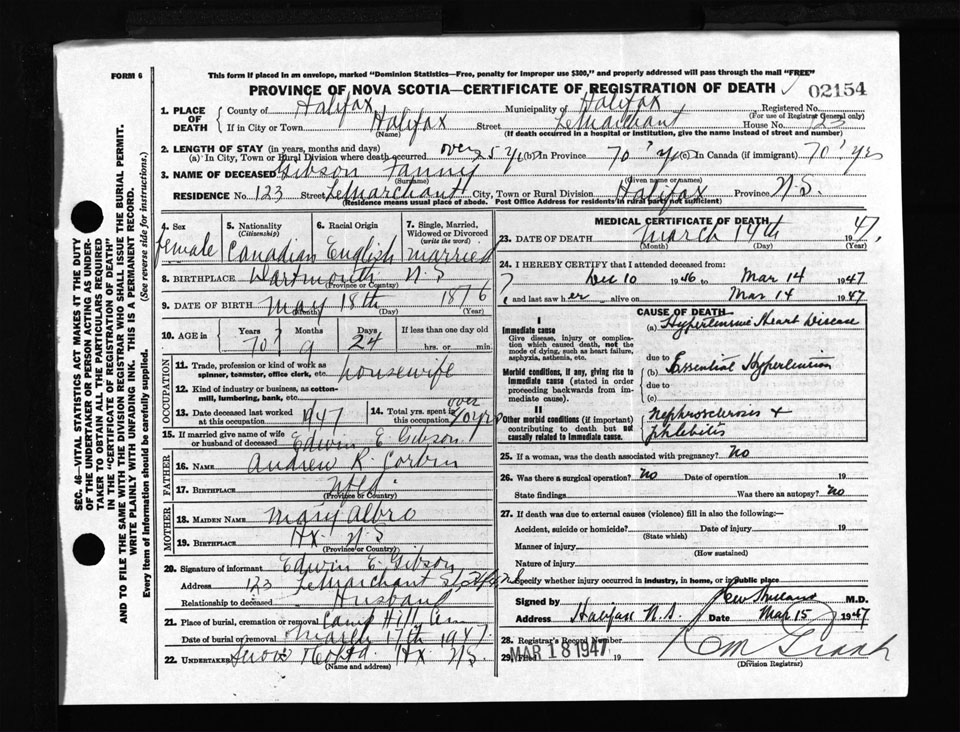 FORM 6
This form if placed in an envelope, marked "Dominion Statistics—Free, penalty for improper use $300," and properly addressed will pass through the mail "FREE"
PROVINCE OF NOVA SCOTIA—CERTIFICATE OF REGISTRATION OF DEATH 02154
1. PLACE OF DEATH
County of Halifax Municipality of Halifax Registered No.
(For use of Registrar General only)
If in City or Town Halifax Street LeMarchant House No. 123
(Name) (If death occurred in a hospital or institution, give the name instead of street and number)
2. LENGTH OF STAY (in years, months and days)
(a) In City, Town or Rural Division where death occurred over 25 yrs (b) In Province 70 yrs (c) In Canada (if immigrant) 70 yrs
3. NAME OF DECEASED Gibson Fanny
(Surname) (Given name or names)
RESIDENCE No. 123 Street LeMarchant City, Town or Rural Division Halifax Province N.S.
(Residence means usual place of abode. Post Office Address for residents in rural parts not sufficient)
4. Sex
female
5. Nationality
(Citizenship)
Canadian
6. Racial Origin
English
7. Single, Married, Widowed or Divorced
(write the word)
married
8. BIRTHPLACE Dartmouth N S
(Province or Country)
9. DATE OF BIRTH May 18th 1876
(Month) (Day) (Year)
10. AGE in
Years Months Days If less than one day old
70 9 24 hrs. or min.
OCCUPATION
11. Trade, profession or kind of work as housewife
spinner, teamster, office clerk, etc.
12. Kind of industry or business, as cotton-
mill, lumbering, bank, etc.
13. Date deceased last worked at this occupation 1947
14. Total yrs. spent in this occupation over
15. If married give name of wife or husband of deceased Edwin E. Gibson
FATHER
16. NAME Andrew R. Corbin
17. BIRTHPLACE Nfld.
(Province or Country)
MOTHER
18. MAIDEN NAME Mary Albro
19. BIRTHPLACE Hx. N.S
(Province or Country)
20. Signature of informant Edwin E. Gibson
Address 123 LeMarchant St
Relationship to deceased Husband
21. Place of burial, cremation or removal Camp Hill Cem
Date of burial or removal March 17th 1947
22. UNDERTAKER Snow & Co Ltd. Hx. N.S.
(Name and address)
MEDICAL CERTIFICATE OF DEATH
23. DATE OF DEATH March 14th 1947
(Month) (Day) (Year)
24. I HEREBY CERTIFY that I attended deceased from:
Dec 10 1946 to Mar 14 1947
and last saw her alive on Mar 14 1947
CAUSE OF DEATH
I
Immediate cause
Give disease, injury or complication which caused death, not the mode of dying, such as heart failure, asphyxia, asthenia, etc.
(a) Hypertensive Heart Disease
due to
Morbid conditions, if any, giving rise to immediate cause (stated in order proceeding backwards from immediate cause).
(b) Essential Hypertension
due to
(c)
II
Other morbid conditions (if important) contributing to death but not causally related to immediate cause.
Nephrosclerosis &
phlebitis
25. If a woman, was the death associated with pregnancy? No
26. Was there a surgical operation? No Date of operation 19
State findings Was there an autopsy? No
27. If death was due to external causes (violence) fill in also the following:—
Accident, suicide or homicide? Date of injury 19
(State which)
Manner of injury
(How sustained)
Nature of injury
Specify whether injury occurred in industry, in home, or in public place
Signed by M.D.
Address Halifax N.S. Date Mar 15 1947
28. Registrar's Record Number
29. Filed MAR 18 1947 19
(Division Registrar)
SEC. 46—VITAL STATISTICS ACT MAKES IT THE DUTY
OF THE UNDERTAKER OR PERSON ACTING AS UNDER-
TAKER TO OBTAIN ALL THE PARTICULARS REQUIRED
IN THE "CERTIFICATE OF REGISTRATION OF DEATH"
AND TO FILE THE SAME WITH THE DIVISION REGISTRAR WHO SHALL ISSUE THE BURIAL PERMIT.
WRITE PLAINLY WITH UNFADING INK. THIS IS A PERMANENT RECORD.
Every item of Information should be carefully supplied. (See reverse side for instructions.)